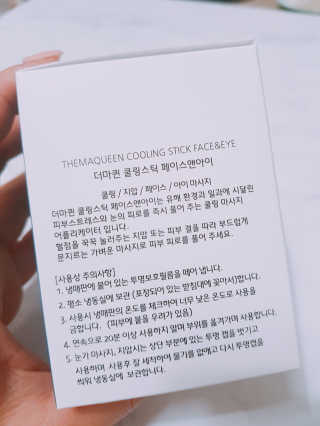 THEMAQUEEN COOLING STICK FACE&EYE
더마퀸 쿨링스틱 페이스앤아이
쿨링 / 지압 / 페이스 / 아이 마사지
더마퀸 쿨링스틱 페이스앤아이는 유해 환경과 일과에 시달린
피부스트레스와 눈의 피로를 즉시 풀어 주는 쿨링 마사지
어플리케이터 입니다.
혈점을 꾹꾹 눌러주는 지압 또는 피부 결을 따라 부드럽게
문지르는 가벼운 마사지로 피부 피로를 풀어 주세요.
[사용상 주의사항]
1. 냉매판에 붙어 있는 투명보호필름을 떼어 냅니다.
2. 평소 냉동실에 보관 (포장되어 있는 받침대에 꽂아서)합니다.
3. 사용시 냉매판의 온도를 체크하여 너무 낮은 온도로 사용을
금합니다. (피부에 붙을 우려가 있음)
4. 연속으로 20분 이상 사용하지 말며 부위를 옮겨가며 사용합니다.
5. 눈가 마사지, 지압시는 상단 부분에 있는 투명 캡을 벗기고
사용하며 사용후 잘 세척하여 물기를 없애고 다시 투명캡을
씌워 냉동실에 보관합니다.